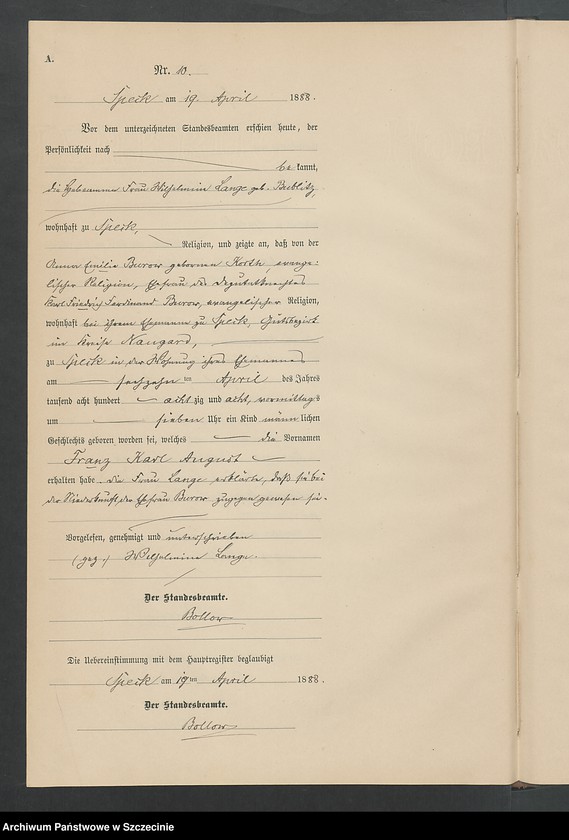 A.
Nr. 10.
Speck am 19 April 1888.
Vor dem unterzeichneten Standesbeamten erschien heute, der
Persönlichkeit nach
be kannt,
die Hebeamme Frau Wilhelmine Lange geb. Bublitz,
wohnhaft zu Speck,
Religion, und zeigte an, daß von der
Anna Emilie Burow geborenen Korth, evange-
lischer Religion, Ehefrau des Deputatknechtes
Karl Friedrich Ferdinand Burow, evangelischer Religion,
wohnhaft bei ihrem Ehemann zu Speck, Gutsbezirk
im Kreise Naugard,
zu Speck in der Wohnung ihres Ehemannes
am sechzehn ten April des Jahres
tausend acht hundert acht zig und acht, vormittags
um sieben Uhr ein Kind männ lichen
Geschlechts geboren worden sei, welches die Vornamen
Franz Karl August
erhalten habe. die Frau Lange erklärte, daß sie bei
der Niederkunft der Ehefrau Burow zugegen gewesen sei.
Vorgelesen, genehmigt und unterschrieben
(gez.) Wilhelmine Lange.
Der Standesbeamte.
Bollow
Die Uebereinstimmung mit dem Hauptregister beglaubigt
Speck am 19ten April 1888.
Der Standesbeamte.
Bollow
Archiwum Państwowe w Szczecinie